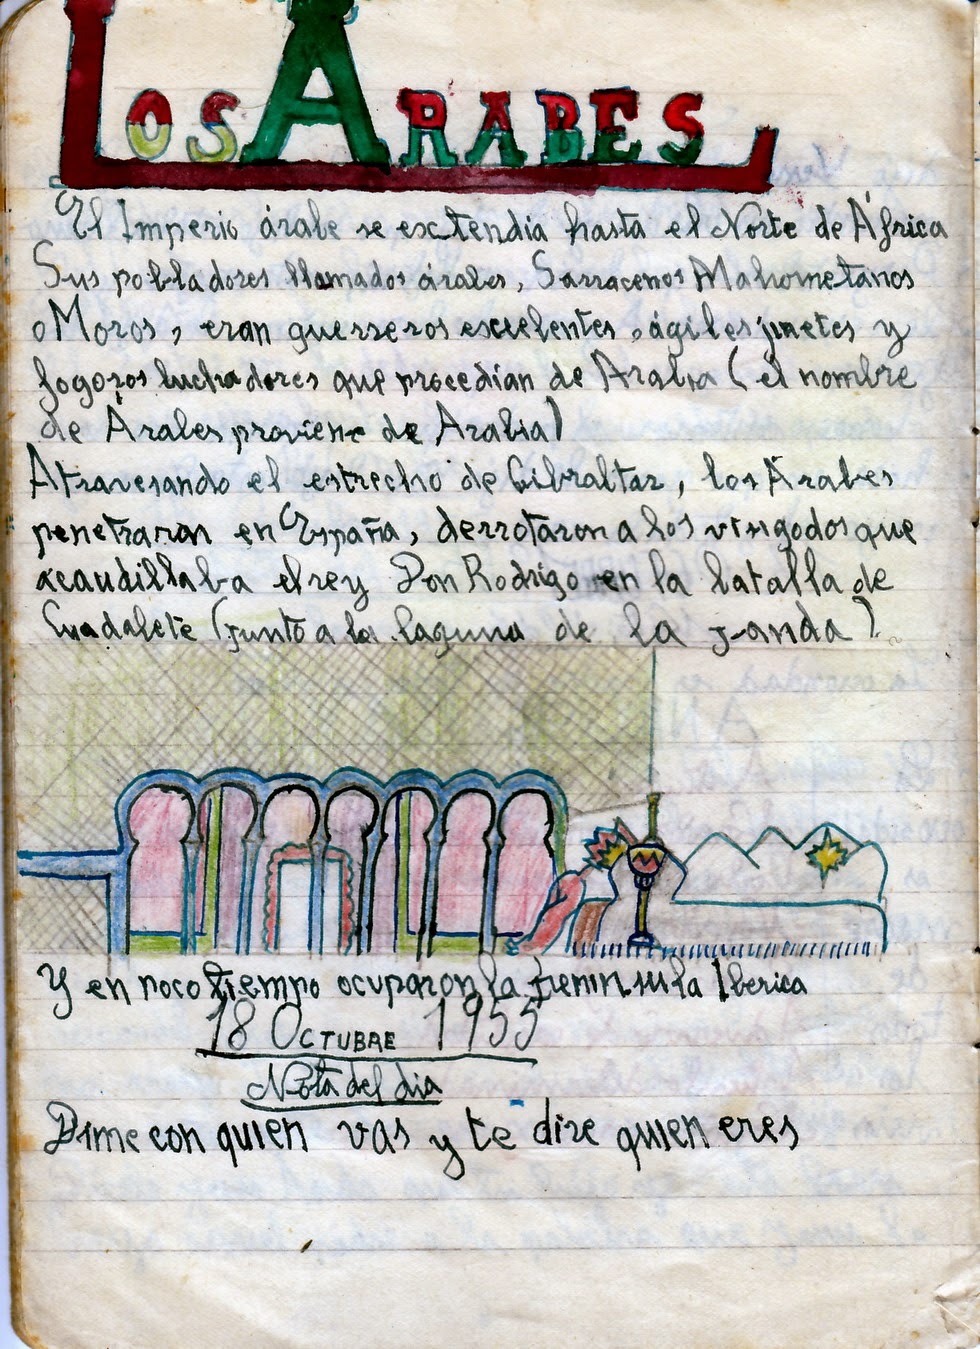 Los Arabes
El Imperio árabe se extendia hasta el Norte de África
Sus pobladores llamados árabes, Sarracenos Mahometanos
o Moros, eran guerreros excelentes, ágiles jinetes y
fogosos luchadores que procedian de Arabia (el nombre
de Árabes proviene de Arabia)
Atravesando el estrecho de Gibraltar, los Árabes
penetraron en España, derrotaron a los visigodos que
acaudillaba el rey Don Rodrigo en la batalla de
Guadalete (junto a la laguna de la janda).
Y en poco tiempo ocuparon la peninsula Iberica
18 Octubre 1955
Nota del dia
Dime con quien vas y te dire quien eres